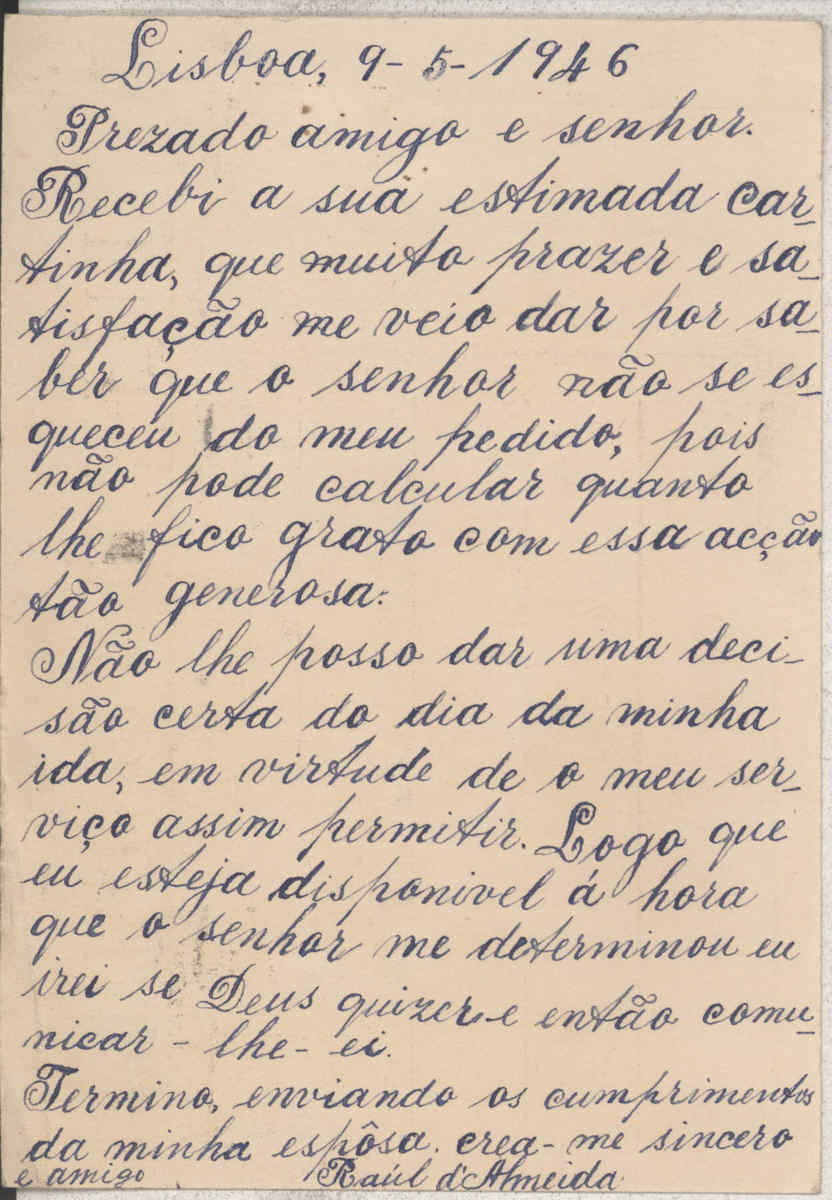 Lisboa, 9-5-1946
Prezado amigo e senhor.
Recebi a sua estimada car-
tinha, que muito prazer e sa-
tisfação me veio dar por sa-
ber que o senhor não se es-
queceu do meu pedido, pois
não pode calcular quanto
lhe fico grato com essa acção
tão generosa:
Não lhe posso dar uma deci-
são certa do dia da minha
ida, em virtude de o meu ser-
viço assim permitir. Logo que
eu esteja disponivel á hora
que o senhor me determinou eu
irei se Deus quizer e então comu-
nicar-lhe-ei.
Termino, enviando os cumprimentos
da minha espôsa. crea-me sincero
e amigo Raúl d'Almeida